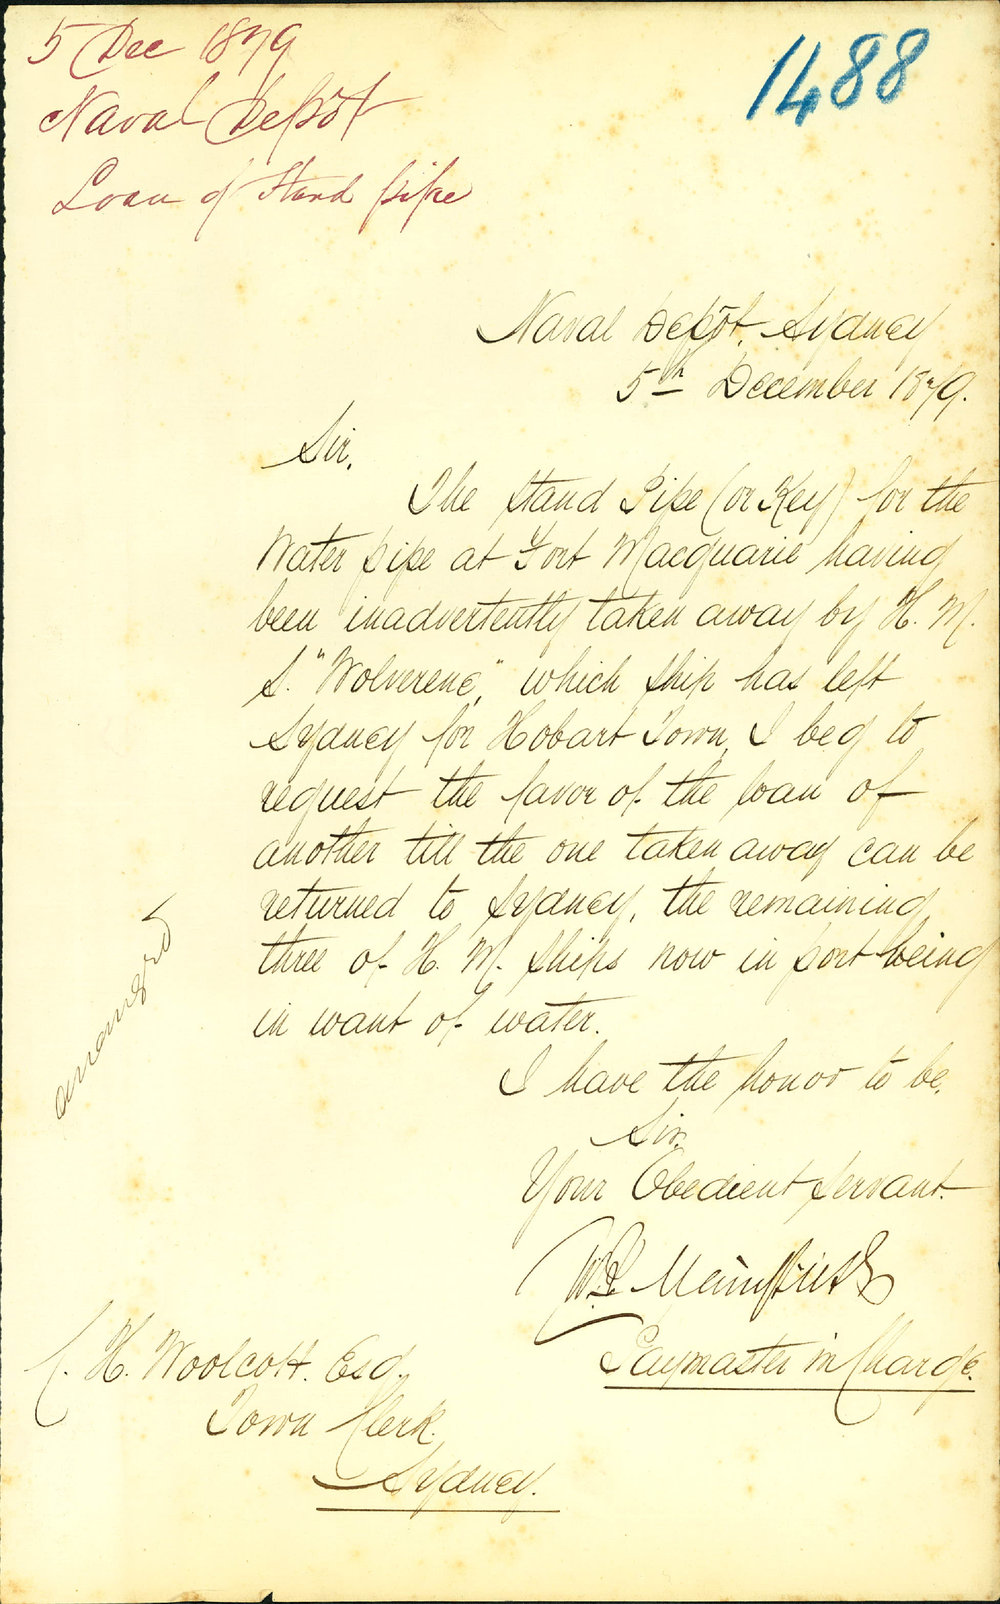 5 Dec 1879
Naval Depôt
Loan of Stand pipe
1488
Naval Depôt, Sydney
5th December 1879.
Sir,
The Stand Pipe (or Key) for the
Water pipe at Fort Macquarie having
been inadvertently taken away by H. M.
S. "Wolverene," which ship has left
Sydney for Hobart Town, I beg to
request the favor of the loan of
another till the one taken away can be
returned to Sydney, the remaining
three of H. M. Ships now in port being
in want of water.
arranged
I have the honor to be,
Sir,
Your Obedient Servant.
Paymaster in Charge.
C. H. Woolcott. Esq.,
Town Clerk,
Sydney.